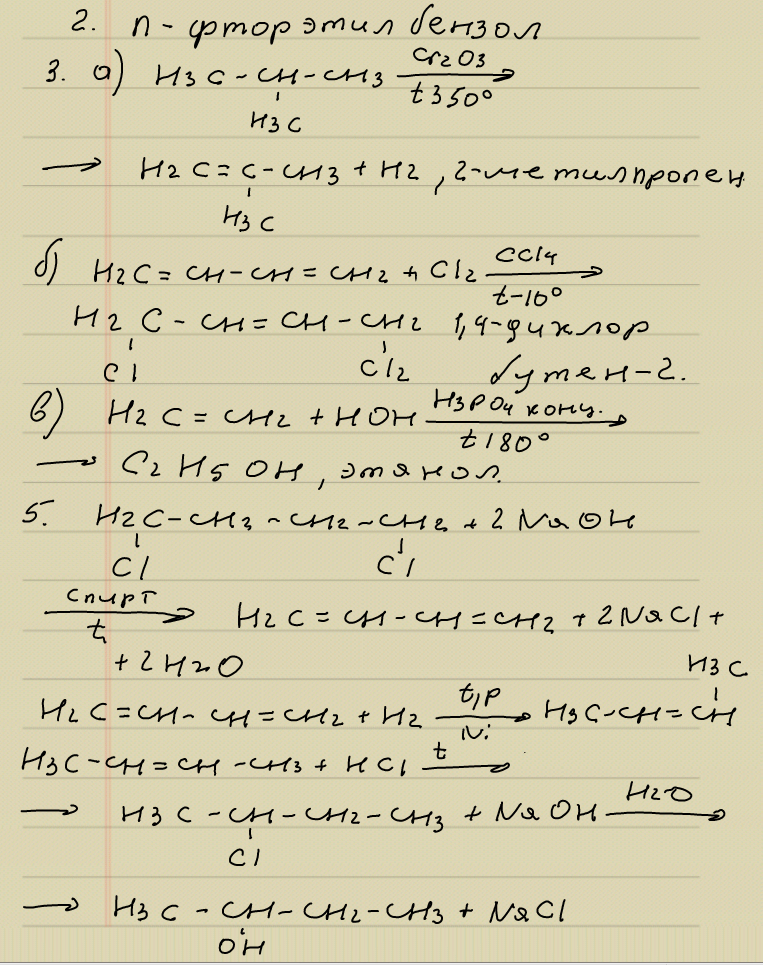 2. п-фторэтилбензол
3. а) H3C-CH-CH3 Cr2O3
t 350°
H3C
→ H2C=C-CH3 + H2, 2-метилпропен
H3C
б) H2C=CH-CH=CH2 + Cl2 CCl4
t-10°
H2C-CH=CH-CH2 1,4-дихлор
Cl Cl2 бутен-2.
в) H2C=CH2 + HOH H3PO4 конц.
t 180°
→ C2H5OH, этанол.
5. H2C-CH2-CH2-CH2 + 2NaOH
Cl Cl
спирт
t → H2C=CH-CH=CH2 + 2NaCl +
+ 2H2O H3C
H2C=CH-CH=CH2 + H2 t,p Ni → H3C-CH=CH
H3C-CH=CH-CH3 + HCl t →
→ H3C-CH-CH2-CH3 + NaOH H2O →
Cl
→ H3C-CH-CH2-CH3 + NaCl
OH